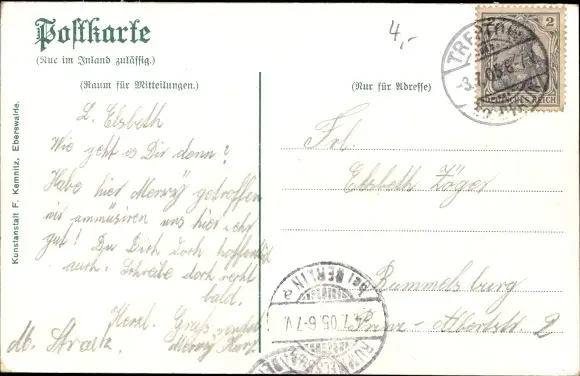 Postkarte
(Nur im Inland zulässig.)
(Raum für Mitteilungen.)
(Nur für Adresse)
4,-
2 2
DEUTSCHES REICH
-3.7.05.6-7
L. Elsbeth
Wie geht es Dir denn?
Habe hier getroffen
wir amüsiren uns hier sehr
gut! Du Dich doch hoffentlich
auch. Schreibe doch recht
bald.
Herzl. Gruß sendet
M. Strauz
Frl.
Elsbeth Jäger
Rummelsburg
Prinz-Albertstr. 2
bei BERLIN
a
4.7.05.6-7V.
RUMMELSBURG
Kunstanstalt F. Kemnitz, Eberswalde.